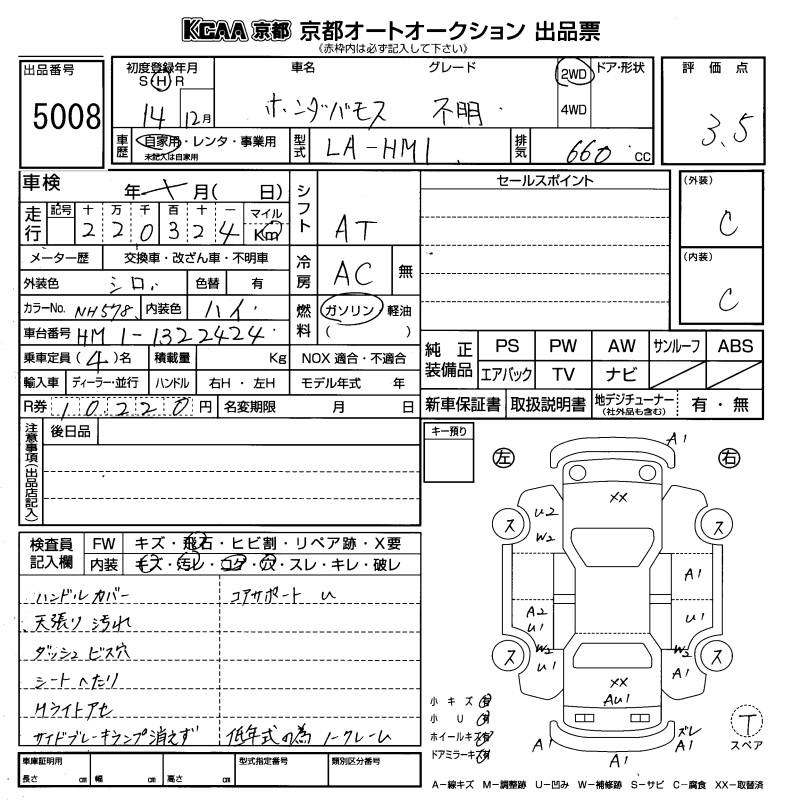 KCAA 京都 京都オートオークション 出品票
《赤枠内は必ず記入して下さい》
出品番号
5008
初度登録年月
S H R
14 12月
車名
グレード
ホンダバモス 不明
2WD
4WD
ドア・形状
評価点
3.5
車歴
自家用・レンタ・事業用
未記入は自家用
型式
LA-HM1
排気
660 cc
車検
年 月( 日)
走行
記号 十 万 千 百 十 一 マイル
2 2 0 3 2 4 Km
シフト
AT
セールスポイント
(外装)
C
(内装)
C
メーター歴 交換車・改ざん車・不明車
冷房
AC 無
外装色 シロ 色替 有
カラーNo. NH578 内装色 ハイ
燃料
ガソリン 軽油
( )
車台番号 HM1-1322424
乗車定員 (4)名 積載量 Kg NOX 適合・不適合
輸入車 ディーラー・並行 ハンドル 右H・左H モデル年式 年
R券 10220円 名変期限 月 日
純正装備品
PS PW AW サンルーフ ABS
エアバック TV ナビ
新車保証書 取扱説明書 地デジチューナー(社外品も含む) 有・無
注意事項(出品店記入)
後日品
キー預り
左 右
A1
XX
U2
W2
ス ス
A1
A2
U1
U1
W2
U1
W2
A1
ス ス
XX
AU1
A1
A1
ズレ
A1
T
スペア
検査員記入欄
FW キズ・飛石・ヒビ割・リペア跡・X要
内装 キズ・汚レ・コゲ・穴・スレ・キレ・破レ
ハンドルカバー コアサポート U
天張り汚れ
ダッシュビス穴
シートへたり
Hライトアセ
サイドブレーキランプ消えず 低年式の為ノークレーム
小キズ 有
小U 有
ホイールキズ 有
ドアミラーキズ 有
車庫証明用 型式指定番号 類別区分番号
長さ cm 幅 cm 高さ cm
A-線キズ M-調整跡 U-凹み W-補修跡 S-サビ C-腐食 XX-取替済